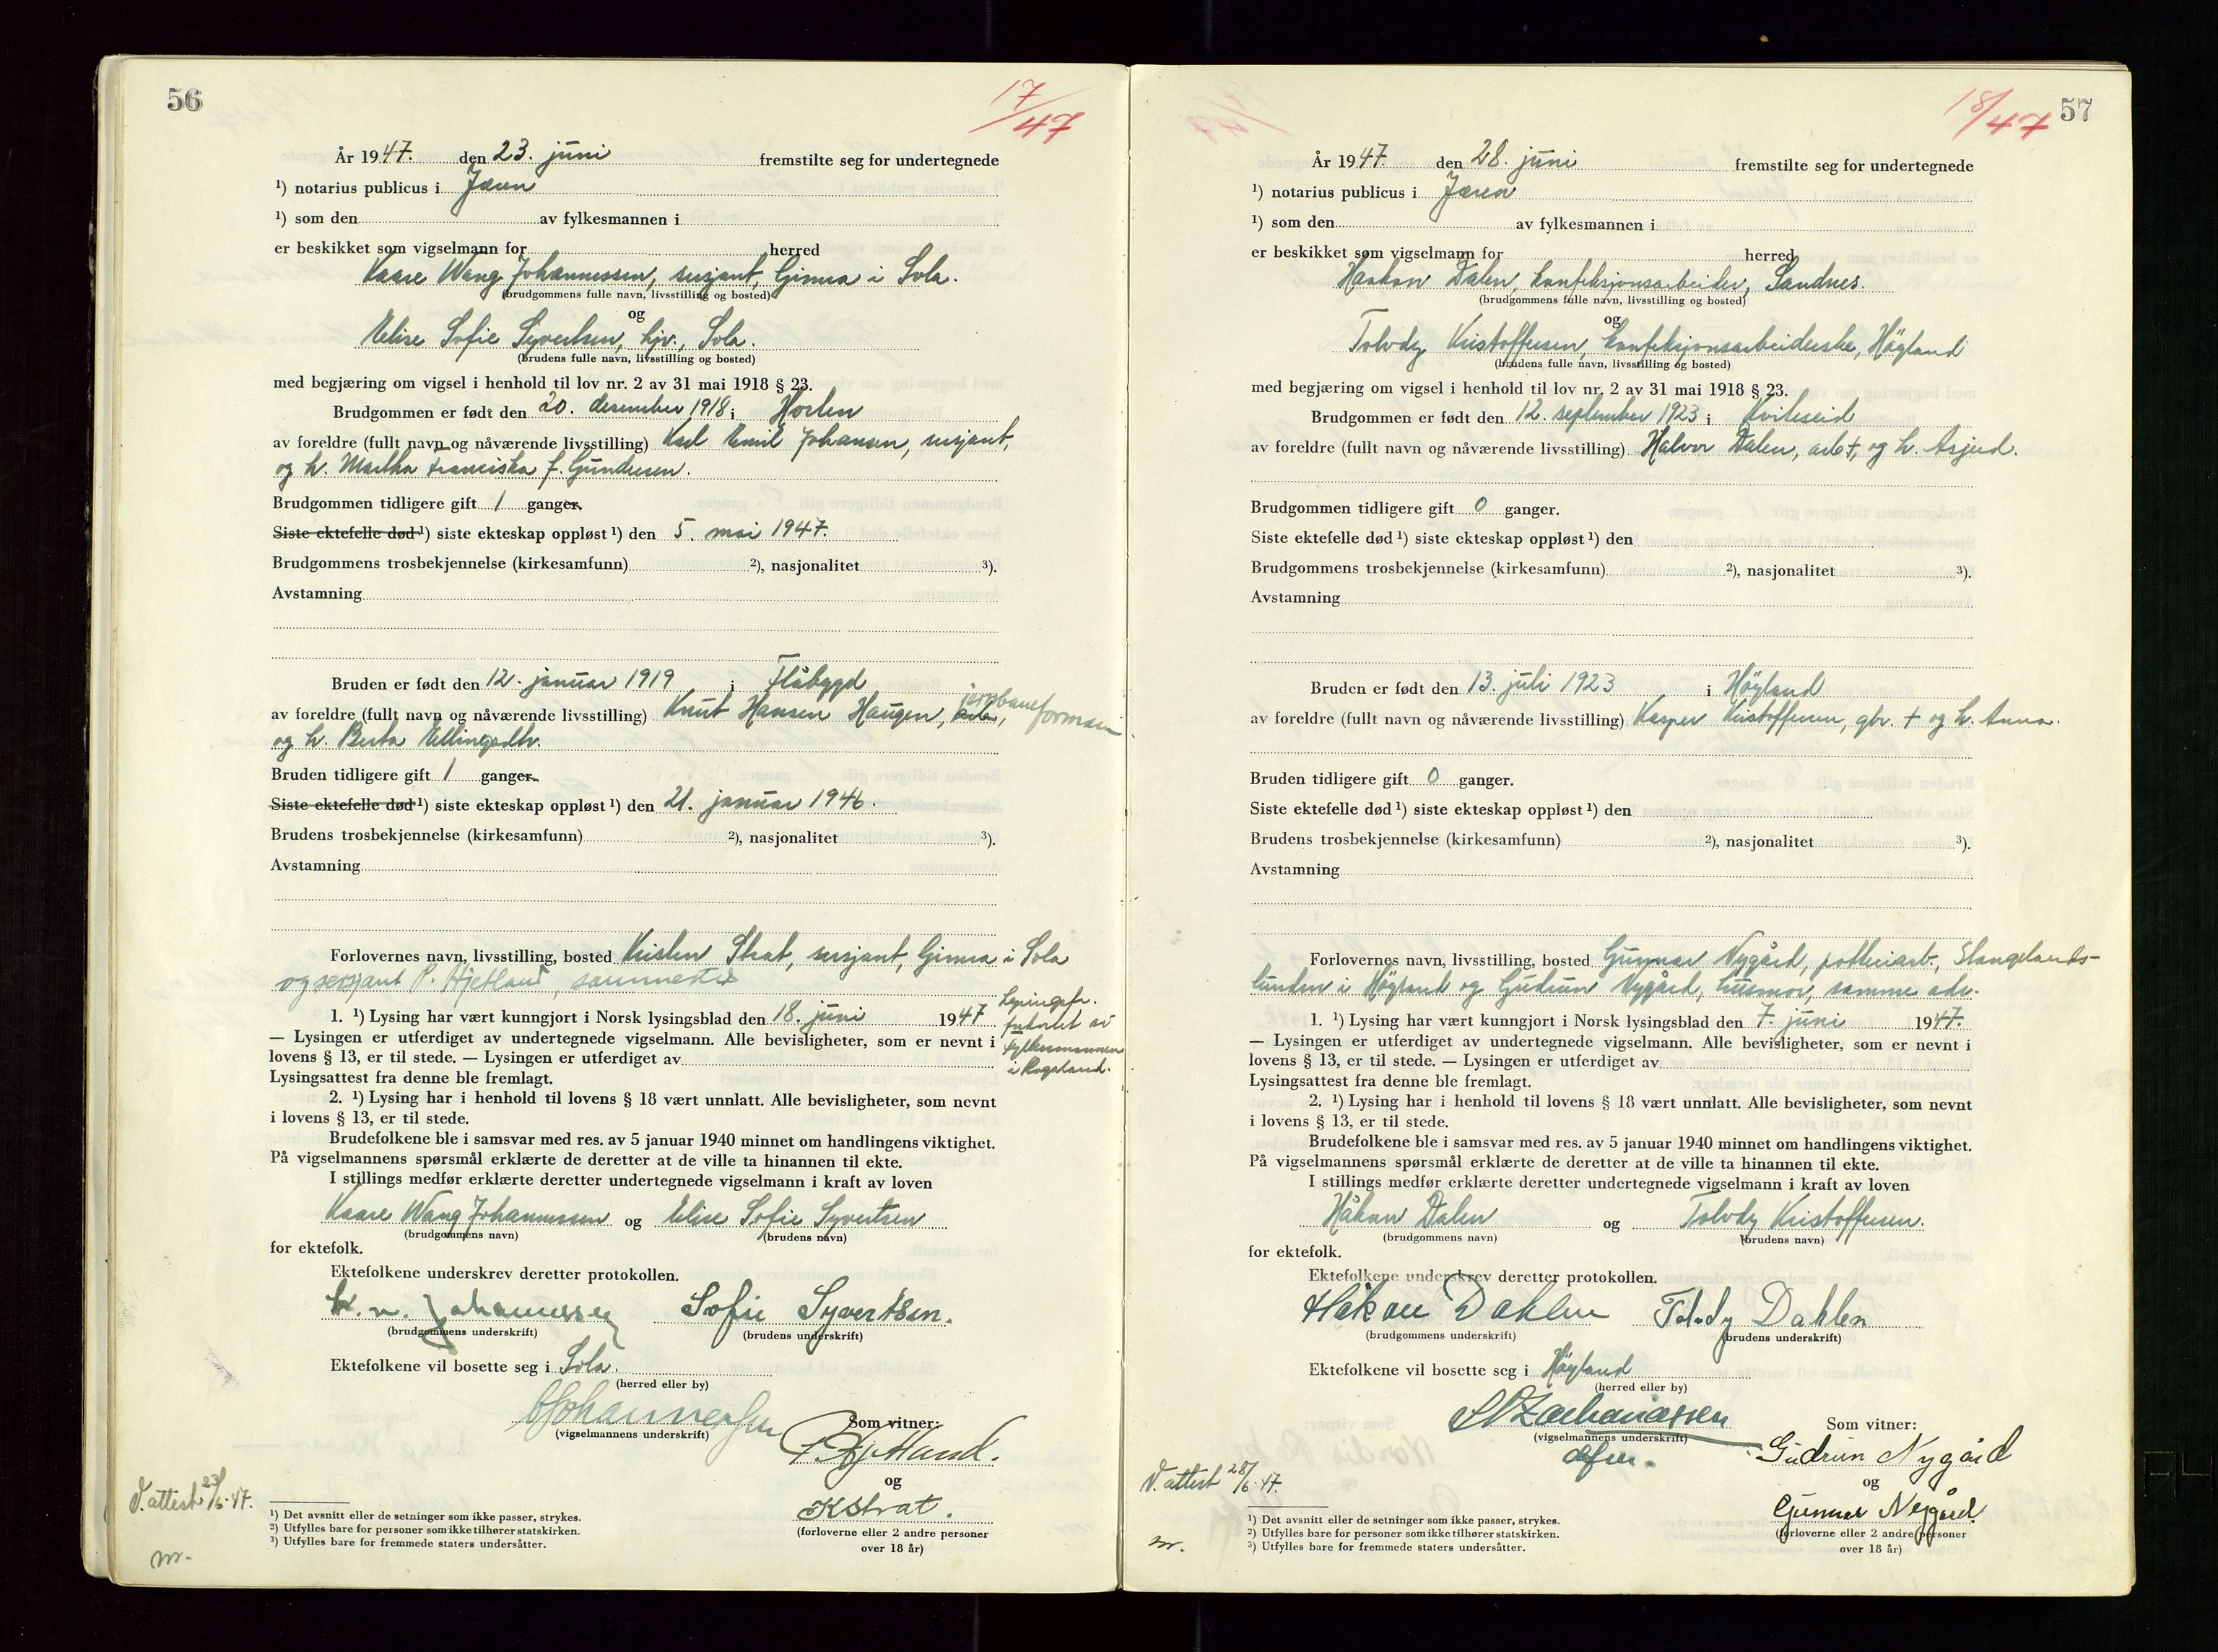 56
17/47
År 1947. den 23. juni fremstilte seg for undertegnede
¹) notarius publicus i Jæren
¹) som den av fylkesmannen i
er beskikket som vigselmann for herred
Kaare Wang Johannessen, sersjant, Gimra i Sola.
(brudgommens fulle navn, livsstilling og bosted)
og
Elise Sofie Syvertsen, hjv., Sola.
(brudens fulle navn, livsstilling og bosted)
med begjæring om vigsel i henhold til lov nr. 2 av 31 mai 1918 § 23.
Brudgommen er født den 20. desember 1918 i Horten
av foreldre (fullt navn og nåværende livsstilling) Karl Emil Johansen, sersjant,
og h. Martha Franciska f. Gundersen.
Brudgommen tidligere gift 1 ganger.
Siste ektefelle død ¹) siste ekteskap oppløst ¹) den 5. mai 1947.
Brudgommens trosbekjennelse (kirkesamfunn) ²), nasjonalitet ³).
Avstamning
Bruden er født den 12. januar 1919 i Flåbygd
av foreldre (fullt navn og nåværende livsstilling) Knut Hansen Haugen, jernbaneformann
og h. Berta Ellingsdtr.
Bruden tidligere gift 1 ganger.
Siste ektefelle død ¹) siste ekteskap oppløst ¹) den 21. januar 1946.
Brudens trosbekjennelse (kirkesamfunn) ²), nasjonalitet ³).
Avstamning
Forlovernes navn, livsstilling, bosted Kristen Strat, sersjant, Gimra i Sola
og sersjant P. Hjetland, sammesteds
1. ¹) Lysing har vært kunngjort i Norsk lysingsblad den 18. juni 1947
— Lysingen er utferdiget av undertegnede vigselmann. Alle bevisligheter, som er nevnt i
lovens § 13, er til stede. — Lysingen er utferdiget av
Lysingsattest fra denne ble fremlagt.
Lysingsfr.
forkortet av
fylkesmannen
i Rogaland.
2. ¹) Lysing har i henhold til lovens § 18 vært unnlatt. Alle bevisligheter, som nevnt
i lovens § 13, er til stede.
Brudefolkene ble i samsvar med res. av 5 januar 1940 minnet om handlingens viktighet.
På vigselmannens spørsmål erklærte de deretter at de ville ta hinannen til ekte.
I stillings medfør erklærte deretter undertegnede vigselmann i kraft av loven
Kaare Wang Johannessen og Elise Sofie Syvertsen
(brudgommens navn) (brudens navn)
for ektefolk.
Ektefolkene underskrev deretter protokollen.
K. W. Johannessen Sofie Syvertsen.
(brudgommens underskrift) (brudens underskrift)
Ektefolkene vil bosette seg i Sola.
(herred eller by)
Johannessen
(vigselmannens underskrift)
Som vitner:
P. Hjetland.
og
K Strat.
(forloverne eller 2 andre personer
over 18 år)
V. attest 23/6-47.
m.
¹) Det avsnitt eller de setninger som ikke passer, strykes.
²) Utfylles bare for personer som ikke tilhører statskirken.
³) Utfylles bare for fremmede staters undersåtter.
57
18/47
År 1947. den 28. juni fremstilte seg for undertegnede
¹) notarius publicus i Jæren
¹) som den av fylkesmannen i
er beskikket som vigselmann for herred
Haakon Dalen, konfeksjonsarbeider, Sandnes.
(brudgommens fulle navn, livsstilling og bosted)
og
Tolvdy Kristoffersen, konfeksjonsarbeiderske, Høyland
(brudens fulle navn, livsstilling og bosted)
med begjæring om vigsel i henhold til lov nr. 2 av 31 mai 1918 § 23.
Brudgommen er født den 12. september 1923 i Kviteseid
av foreldre (fullt navn og nåværende livsstilling) Halvor Dalen, arb. †, og h. Asjerd.
Brudgommen tidligere gift 0 ganger.
Siste ektefelle død ¹) siste ekteskap oppløst ¹) den
Brudgommens trosbekjennelse (kirkesamfunn) ²), nasjonalitet ³).
Avstamning
Bruden er født den 13. juli 1923 i Høyland
av foreldre (fullt navn og nåværende livsstilling) Kasper Kristoffersen, gbr. † og h. Anna.
Bruden tidligere gift 0 ganger.
Siste ektefelle død ¹) siste ekteskap oppløst ¹) den
Brudens trosbekjennelse (kirkesamfunn) ²), nasjonalitet ³).
Avstamning
Forlovernes navn, livsstilling, bosted Gunnar Nygård, potteriarb., Stangelands-
lunden i Høyland og Gudrun Nygård, husmor, samme adr.
1. ¹) Lysing har vært kunngjort i Norsk lysingsblad den 7. juni 1947.
— Lysingen er utferdiget av undertegnede vigselmann. Alle bevisligheter, som er nevnt i
lovens § 13, er til stede. — Lysingen er utferdiget av
Lysingsattest fra denne ble fremlagt.
2. ¹) Lysing har i henhold til lovens § 18 vært unnlatt. Alle bevisligheter, som nevnt
i lovens § 13, er til stede.
Brudefolkene ble i samsvar med res. av 5 januar 1940 minnet om handlingens viktighet.
På vigselmannens spørsmål erklærte de deretter at de ville ta hinannen til ekte.
I stillings medfør erklærte deretter undertegnede vigselmann i kraft av loven
Håkon Dalen og Tolvdy Kristoffersen.
(brudgommens navn) (brudens navn)
for ektefolk.
Ektefolkene underskrev deretter protokollen.
Håkon Dahlen Tolvdy Dahlen
(brudgommens underskrift) (brudens underskrift)
Ektefolkene vil bosette seg i Høyland
(herred eller by)
Zachariassen
(vigselmannens underskrift)
Som vitner:
Gudrun Nygård
og
Gunnar Nygård.
(forloverne eller 2 andre personer
over 18 år)
V. attest 28/6-47.
m.
¹) Det avsnitt eller de setninger som ikke passer, strykes.
²) Utfylles bare for personer som ikke tilhører statskirken.
³) Utfylles bare for fremmede staters undersåtter.